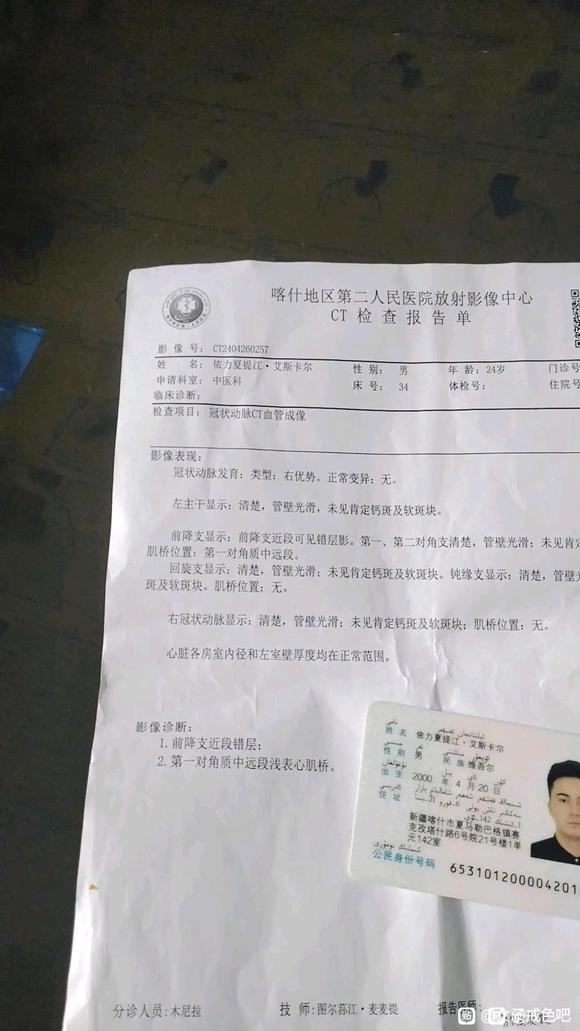 喀什地区第二人民医院放射影像中心
CT 检 查 报 告 单
影 像 号: CT2404260257
姓 名: 依力夏提江·艾斯卡尔 性 别: 男 年 龄: 24岁 门诊号
申请科室: 中医科 床 号: 34 体检号: 住院号
临床诊断:
检查项目: 冠状动脉CT血管成像
影像表现:
冠状动脉发育: 类型: 右优势。正常变异: 无。
左主干显示: 清楚, 管壁光滑, 未见肯定钙斑及软斑块。
前降支显示: 前降支近段可见错层影。第一、第二对角支清楚, 管壁光滑; 未见肯定
肌桥位置: 第一对角质中远段。
回旋支显示: 清楚, 管壁光滑; 未见肯定钙斑及软斑块。钝缘支显示: 清楚, 管壁光
斑及软斑块。肌桥位置: 无。
右冠状动脉显示: 清楚, 管壁光滑; 未见肯定钙斑及软斑块; 肌桥位置: 无。
心脏各房室内径和左室壁厚度均在正常范围。
影像诊断:
1. 前降支近段错层;
2. 第一对角质中远段浅表心肌桥。
姓 名 依力夏提江·艾斯卡尔
性 别 男 民 族 维吾尔
出 生 2000 年 4 月 20 日
住 址
新疆喀什市夏马勒巴格镇赛
克孜塔什路6号院21号楼1单
元142室
公民身份号码 653101200004201
分诊人员: 木尼拉 技 师: 图尔荪江·麦麦提 报告医师:
贴 @戒色吧